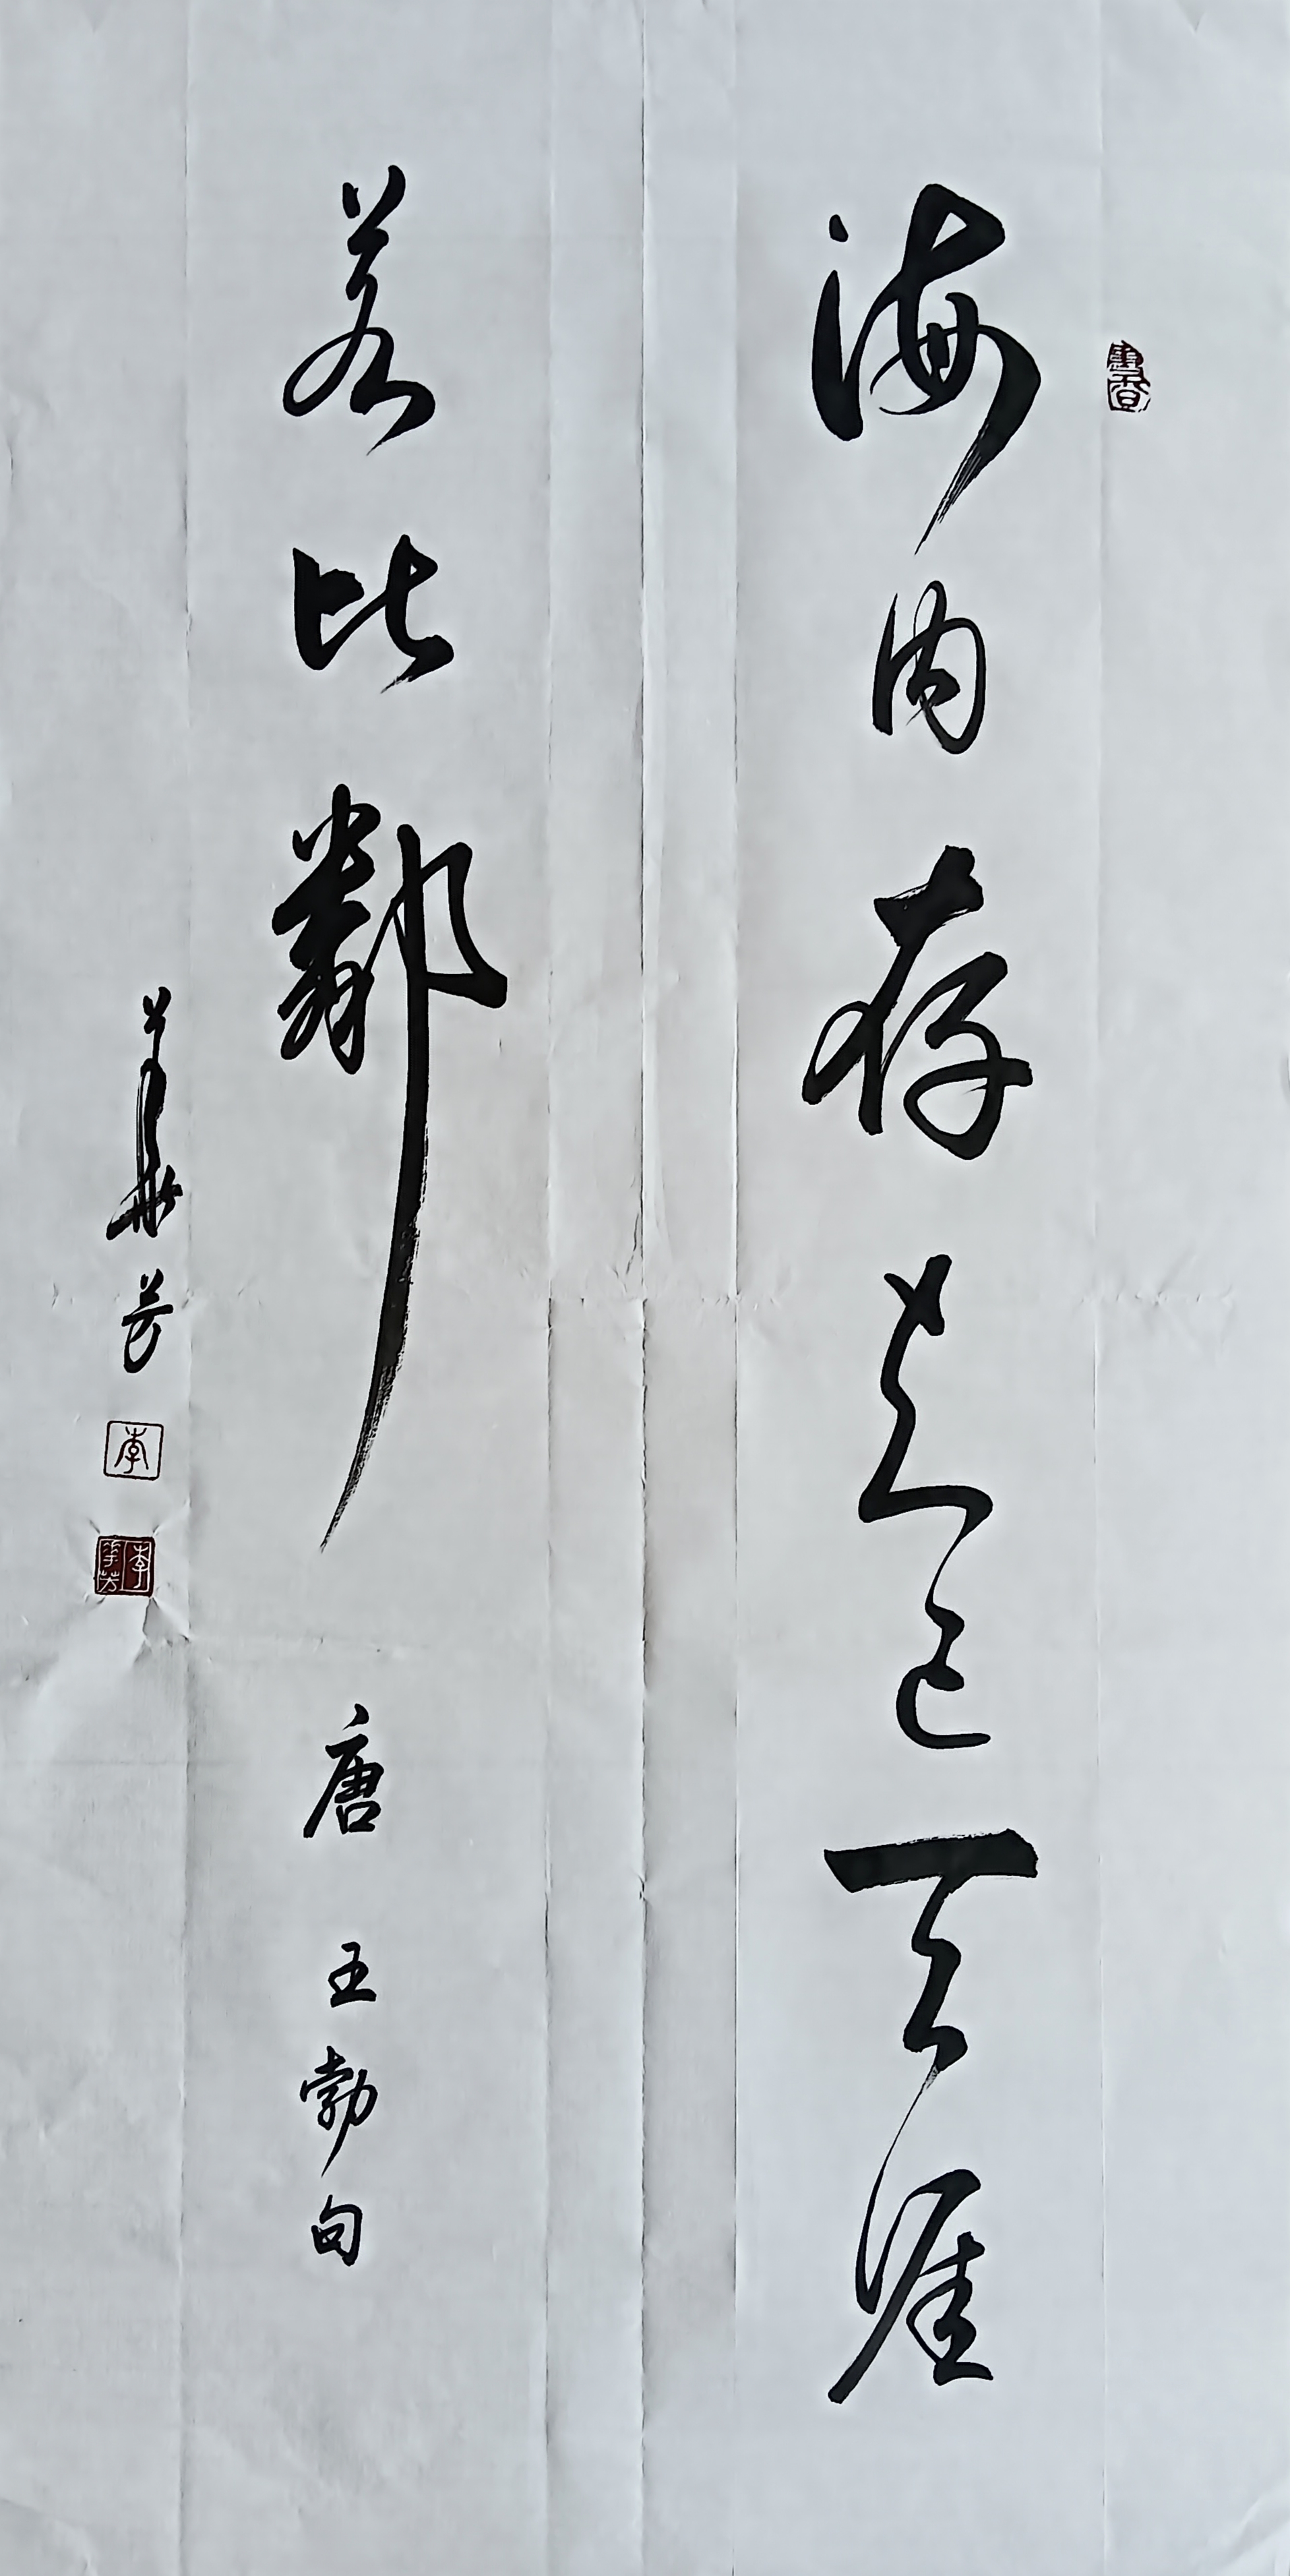 海内存知己天涯
若比鄰 唐 王勃句
華芳
李
李華芳